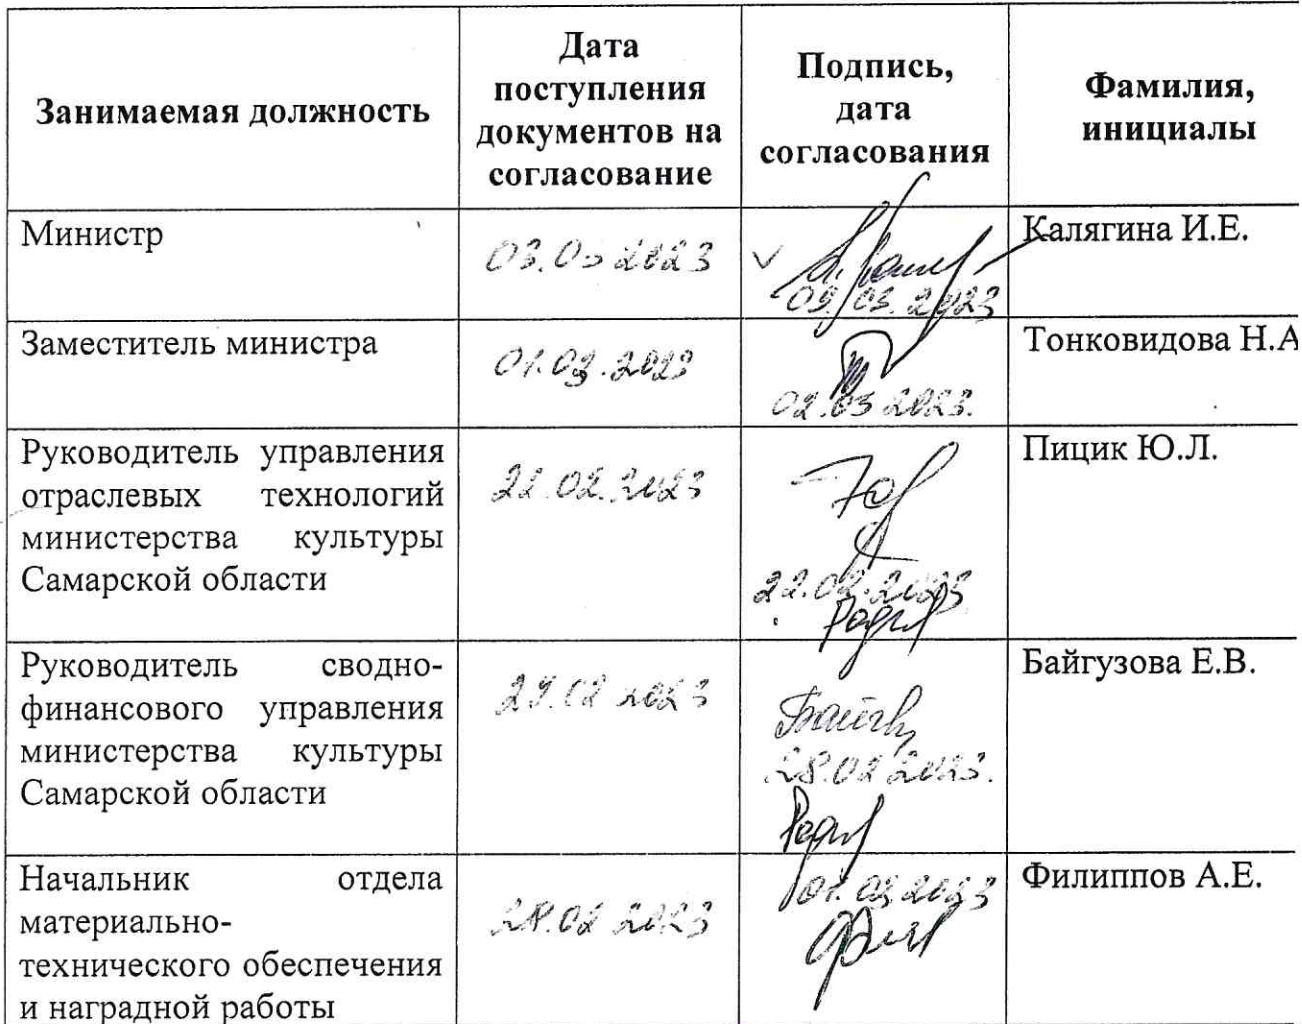 Занимаемая должность
Дата
поступления
документов на
согласование
Подпись,
дата
согласования
Фамилия,
инициалы
Министр
03.03 2023
09.03.2023
Калягина И.Е.
Заместитель министра
01.03.2023
02.03 2023.
Тонковидова Н.А
Руководитель управления
отраслевых технологий
министерства культуры
Самарской области
22.02.2023
22.02.2023
Пицик Ю.Л.
Руководитель сводно-
финансового управления
министерства культуры
Самарской области
02 2023
28.02 2023.
Байгузова Е.В.
Начальник отдела
материально-
технического обеспечения
и наградной работы
28.02 2023
01.03 2023
Филиппов А.Е.